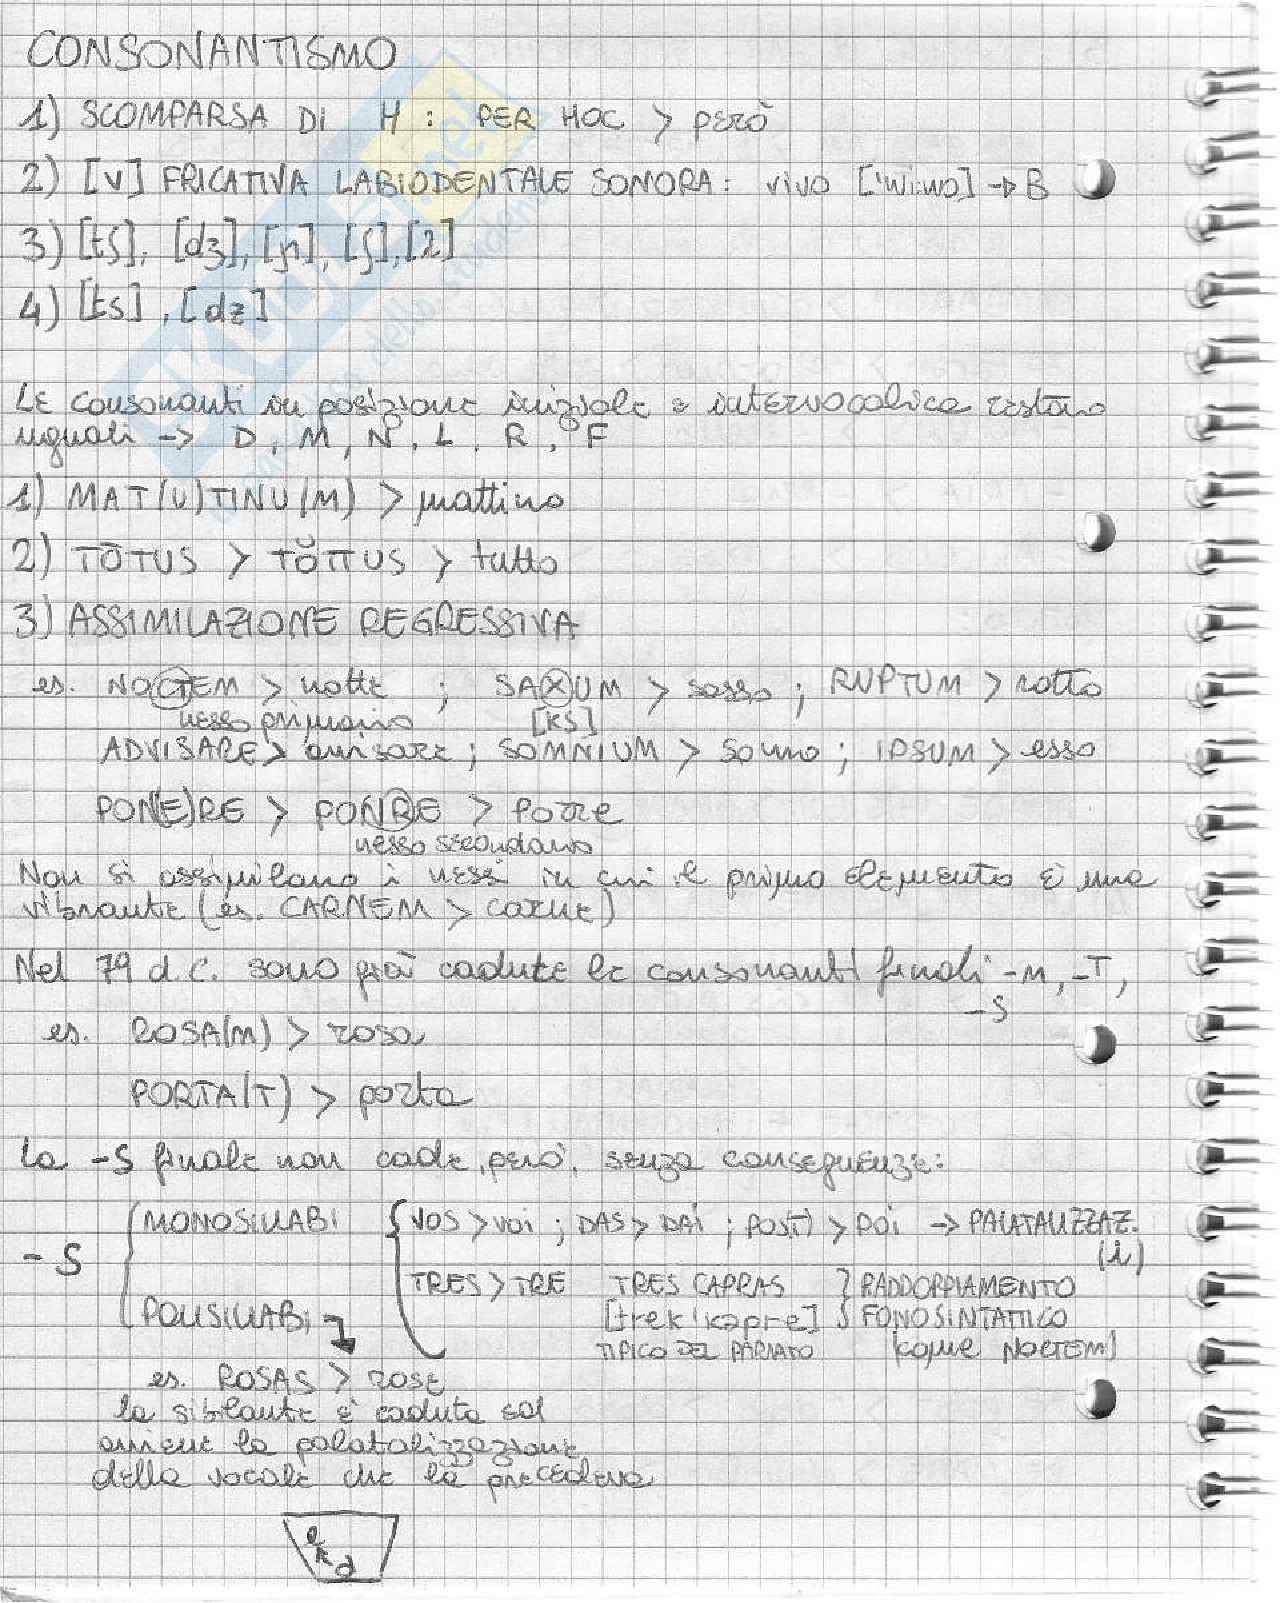 CONSONANTISMO
1) SCOMPARSA DI H : PER HOC > però
2) [v] FRICATIVA LABIODENTALE SONORA: vivo ['wi:wo] → B
3) [tʃ], [dʒ], [ɲ], [ʃ], [ʎ]
4) [ts], [dz]
Le consonanti in posizione iniziale e intervocalica restano
uguali -> D, M, N, L, R, F
1) MAT(U)TINU(M) > mattino
2) TŌTUS > TŎTTUS > tutto
3) ASSIMILAZIONE REGRESSIVA
es. NOCTEM > notte ; SAXUM > sasso ; RUPTUM > rotto
nesso primario [KS]
ADVISARE > avvisare ; SOMNIUM > sonno ; IPSUM > esso
PON(E)RE > PONRE > Porre
nesso secondario
Non si assimilano i nessi in cui il primo elemento è una
vibrante (es. CARNEM > carne)
Nel 79 d.C. sono già cadute le consonanti finali -M, -T,
-S
es. ROSA(M) > rosa
PORTA(T) > porta
La -S finale non cade, però, senza conseguenze:
MONOSILLABI { VOS > voi ; DAS > DAi ; POS(T) > POi → PALATALIZZAZ.
- S (i)
TRES > TRE TRES CAPRAS } RADDOPPIAMENTO
POLISILLABI [trek'kapre] FONOSINTATTICO
TIPICO DEL PARLATO (come NOCTEM)
es. ROSAS > rose
la sibilante è caduta ed
avviene la palatalizzazione
della vocale che la precedeva
e
a